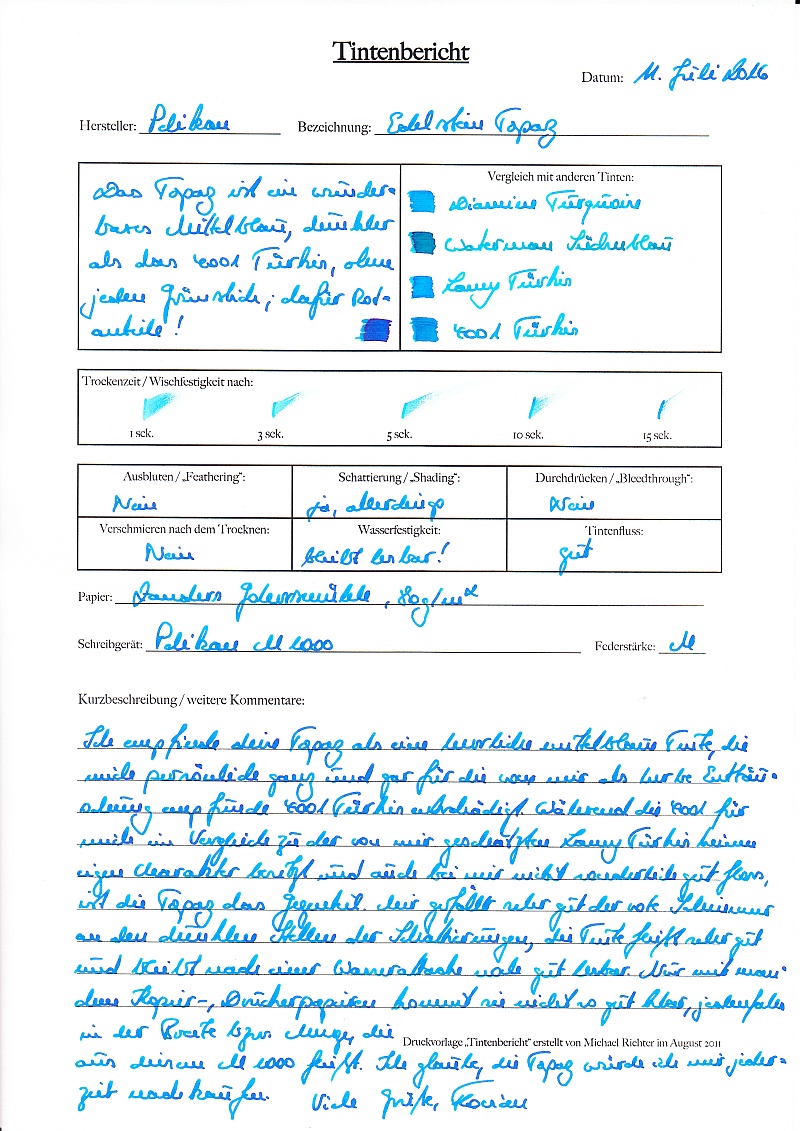 Tintenbericht
Datum: 11. Juli 2016
Hersteller: Pelikan Bezeichnung: Edelstein Topaz
Das Topaz ist ein wunder-
bares Mittelblau, dunkler
als das 4001 Türkis, ohne
jeden Grünstich; dafür Rot-
anteile!
Vergleich mit anderen Tinten:
Diamine Turquoise
Waterman Südseeblau
Lamy Türkis
4001 Türkis
Trockenzeit / Wischfestigkeit nach:
1 sek. 3 sek. 5 sek. 10 sek. 15 sek.
Ausbluten / „Feathering“: Schattierung / „Shading“: Durchdrücken / „Bleedthrough“:
Nein ja, allerdings Nein
Verschmieren nach dem Trocknen: Wasserfestigkeit: Tintenfluss:
Nein bleibt lesbar! gut
Papier: Zanders Gohrsmühle, 80g/m²
Schreibgerät: Pelikan M 1000 Federstärke: M
Kurzbeschreibung / weitere Kommentare:
Ich empfinde deine Topaz als eine herrliche mittelblaue Tinte, die
mich persönlich ganz und gar für die von mir als herbe Enttäu-
schung empfundene 4001 Türkis entschädigt. Während die 4001 für
mich im Vergleich zu der von mir geschätzten Lamy Türkis keinen
eigenen Charakter besitzt und auch bei mir nicht sonderlich gut floss,
ist die Topaz das Gegenteil. Mir gefällt sehr gut der rote Schimmer
an den dunklen Stellen der Schattierungen, die Tinte fließt sehr gut
und bleibt nach einer Wasserattacke noch gut lesbar. Nur mit man-
chen Kopier-, Druckerpapieren kommt sie nicht so gut klar, jedenfalls
in der Breite bzw. Menge, die
Druckvorlage „Tintenbericht“ erstellt von Michael Richter im August 2011
aus deinem M 1000 fließt. Ich glaube, die Topaz würde ich mir jeder-
zeit nachkaufen. Viele Grüße, Florian